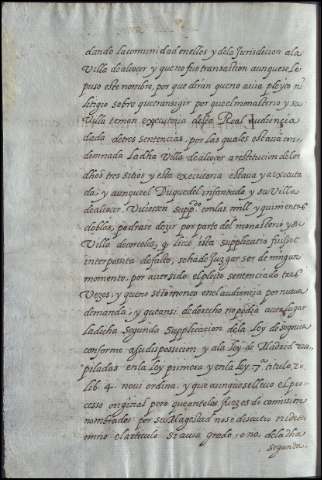 dando la comunidad en ellos y de la Jurisdicion a la
Villa de alcocer y que no fue transaction aunque se le
puso este nombre, por que diran que no auia pleyto ni
litigio sobre que transigir por que el monasterio y su
Villa tienen executoria desta Real audiencia
dada de tres sentencias, por las quales estaua con
denada la dha Villa de alcocer a restitucion de los
dhos tres sitios y esta executoria estaua ya executa
da, y aunque el Duque del infantado y su Villa
de alcocer Vuiessen suppdo. con las mill y quinientas
doblas, podrase dezir por parte del monasterio y su
Villa de cortes, q licet ista supplicatio fuisset
interposita de facto, se ha de Juzgar ser de ningun
momento, por auer sido el pleito sentenciado tres
Vezes, y que no se començo en el audiencia por nueua
demanda, y que ansi de derecho no podia auer lugar
la dicha segunda Supplicacion de la ley de segouia
conforme a su disposicion y a la ley de Madrid reco
piladas en la ley primera y en la ley 7ª titulo, 20
lib 4. noue ordina. y que aunque se lleuo el pro
cesso original pero que ante los Juezes de comission
nombrados por su Magestad no se discutio ni deter
mino el articulo si auia grado o no, de la dha
segunda